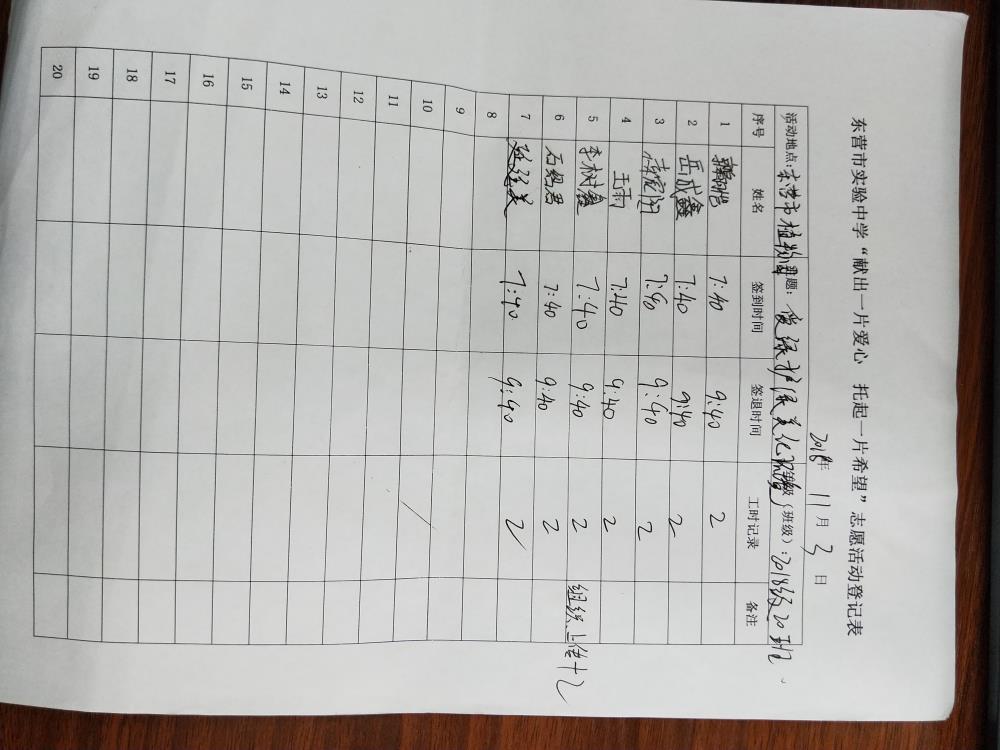 东营市实验中学“献出一片爱心 托起一片希望”志愿活动登记表
2018年 11月 3日
活动地点:东营市植物园 主题: 爱绿护绿美化环境 年级(班级):2018级20班
序号 姓名 签到时间 签退时间 工时记录 备注
1 7:40 9:40 2
2 岳成鑫 7:40 9:40 2
3 7:40 9:40 2
4 王雨 7:40 9:40 2
5 李树鑫 7:40 9:40 2 组织、上传+2
6 石绍君 7:40 9:40 2
7 7:40 9:40 2
8
9
10
11
12
13
14
15
16
17
18
19
20